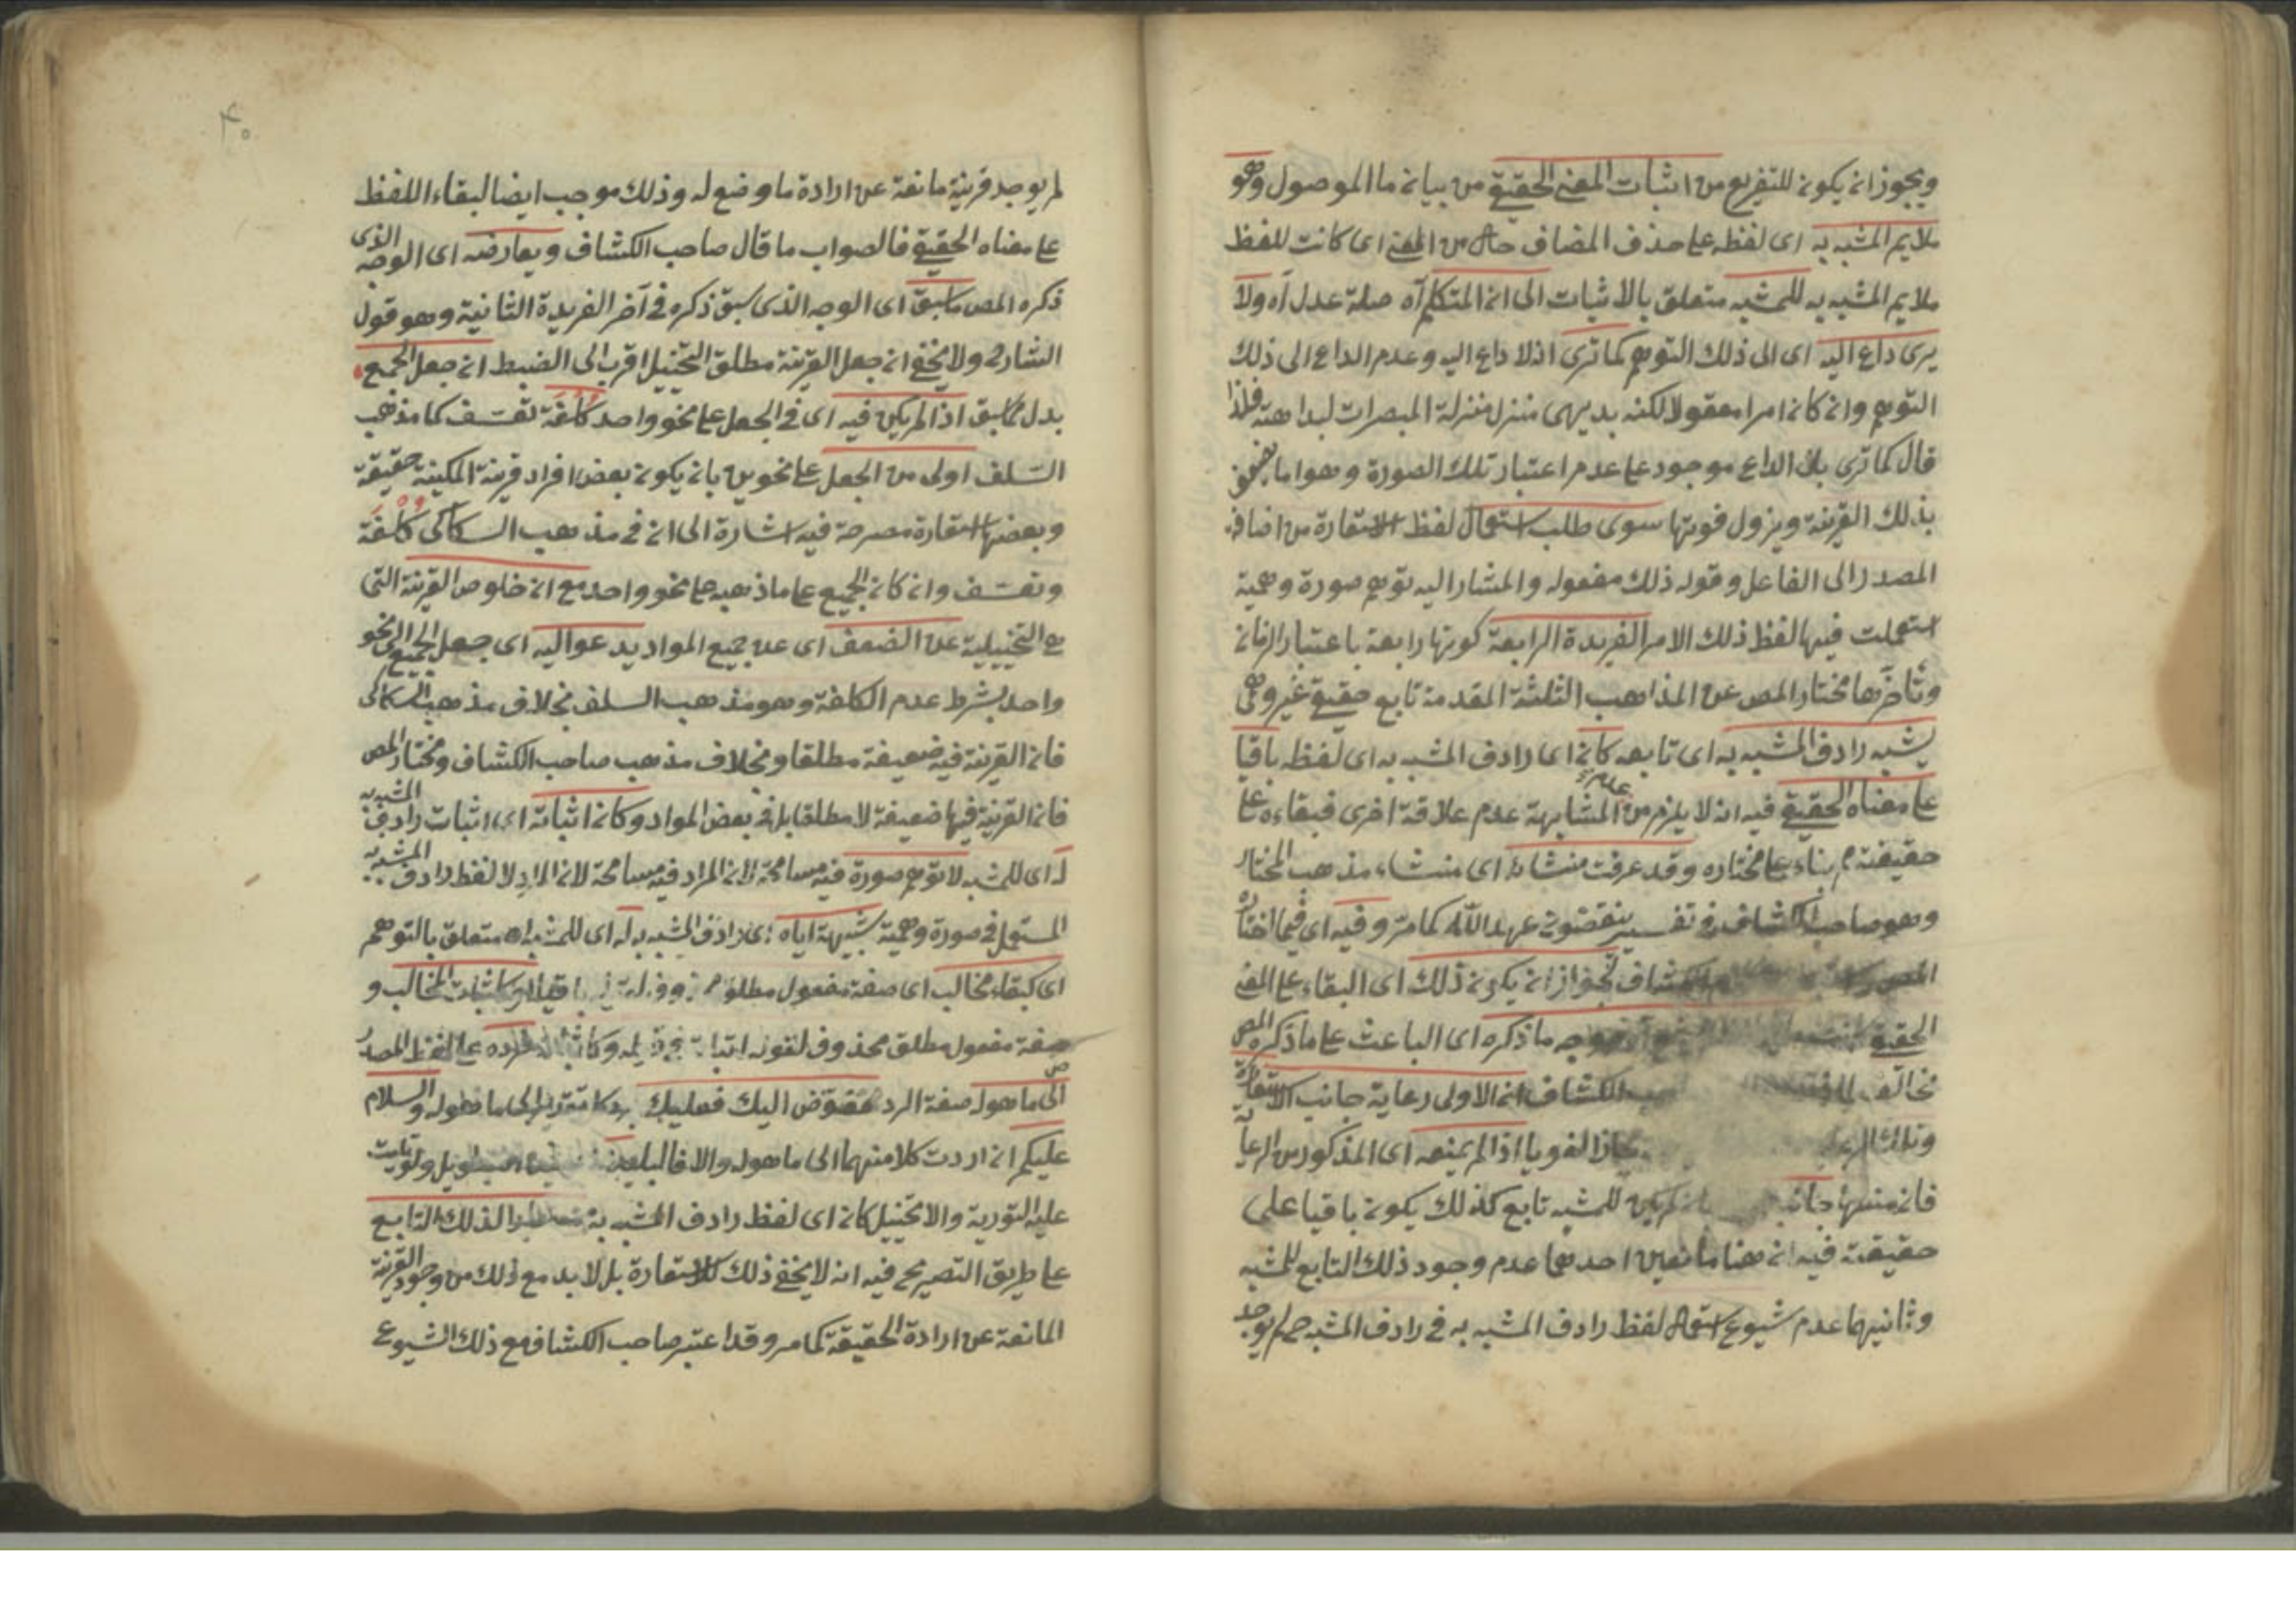 ويجوز ان يكون للتفريع من اثبات المعنى الحقيقي من بيان ما الموصول وهو
ملايم المشبه به اى لفظه على حذف المضاف حال من المعنى اى كانت للفظ
ملايم المشبه به للمشبه متعلق بالاثبات الى ان المتكلم آه صلة عدل آه ولا
يرى داع اليه اى الى ذلك التوهم كما ترى اذ لا داع اليه وعدم الداع الى ذلك
التوهم وان كان امرا معقولا لكنه بديهى منزل منزلة المبصرات لبداهته فلذا
قال كما ترى بل الداع موجود على عدم اعتبار تلك الصورة وهو اما
بذلك القرينة ويزول قوتها سوى طلب استعمال لفظ الاستعارة من اضافة
المصدر الى الفاعل وقوله ذلك مفعوله والمشار اليه توهم صورة وهمية
استعملت فيها لفظ ذلك الامر الفريدة الرابعة كونها رابعة باعتبار الزمان
وتأخرها مختار المص عن المذاهب الثلثة المقدمة تابع حقيقي غير وهمى
يشبه رادف المشبه به اى تابعه كان اى رادف المشبه به اى لفظه باقيا
على معناه الحقيقي فيه انه لا يلزم من عدم المشابهة عدم علاقة اخرى فبقاءه على
حقيقته بناء على مختاره وقد عرفت منشائه اى منشاء مذهب المختار
وهو صاحب الكشاف في تفسير ينقضون عهد الله كما مر وفيه اى فيما اختاره
المص الكشاف لجواز ان يكون ذلك اى البقاء على المعنى
الحقيقي ما ذكره اى الباعث على ما ذكره المص
الكشاف ان الاولى رعاية جانب الاستعارة
مجازا لغويا اذا لم يمنعه اى المذكور من الرعاية
فان للمشبه تابع كذلك يكون باقيا على
حقيقته فيه ان هنا مانعين احدهما عدم وجود ذلك التابع للمشبه
وثانيهما عدم شيوع استعمال لفظ رادف المشبه به في رادف المشبه لم يوجد
لم يوجد قرينة مانعة عن ارادة ما وضع له وذلك موجب ايضا لبقاء اللفظ
على معناه الحقيقي فالصواب ما قال صاحب الكشاف ويعارضه اى الوجه الذى
ذكره المص ما سبق اى الوجه الذى سبق ذكره في آخر الفريدة الثانية وهو قول
الشارح ولا يخفى ان جعل القرينة مطلق التخييل اقرب الى الضبط ان جعل الجميع
بدل مما سبق اذا لم يكن فيه اى في الجعل على نحو واحد كلفة تعسف كما مذهب
السلف اولى من الجعل على نحوين بان يكون بعض افراد قرينة المكنية حقيقة
وبعضها استعارة مصرحة فيه اشارة الى ان في مذهب السكاكى كلفة
وتعسف وان كان الجميع على ما ذهبه على نحو واحد مع ان خلوص القرينة التى
هى التخييلية عن الضعف اى عن جميع المواد يدعو اليه اى جعل الجميع الى نحو
واحد بشرط عدم الكلفة وهو مذهب السلف بخلاف مذهب السكاكى
فان القرينة فيه ضعيفة مطلقا وبخلاف مذهب صاحب الكشاف ومختار المص
فان القرينة فيها ضعيفة لا مطلقا بل في بعض المواد وكان اثباته اى اثبات رادف المشبه به
له اى للمشبه لا توهم صورة فيه مسامحة لان المراد فيه مسامحة لان المراد لا لفظ رادف المشبه به
المستعمل في صورة وهمية شبيهة اياه اى رادف المشبه به له اى للمشبه متعلق بالتوهم
اى كبقاء مخالب اى صفة مفعول مطلق المخالب و
صفة مفعول مطلق محذوف لقوله على لفظ المصدر
الى ما هو له صفة الرد مفوض اليك فعليك الى ما هو له والسلام
عليكم ان اردت كلا منهما الى ما هو له والا فالبليغ
عليه التورية والا تخييل كان اى لفظ رادف المشبه به لذلك التابع
على طريق التصريح فيه انه لا يخفى ذلك للاستعارة بل لا بد مع ذلك من وجود القرينة
المانعة عن ارادة الحقيقة كما مر وقد اعتبر صاحب الكشاف مع ذلك الشيوع